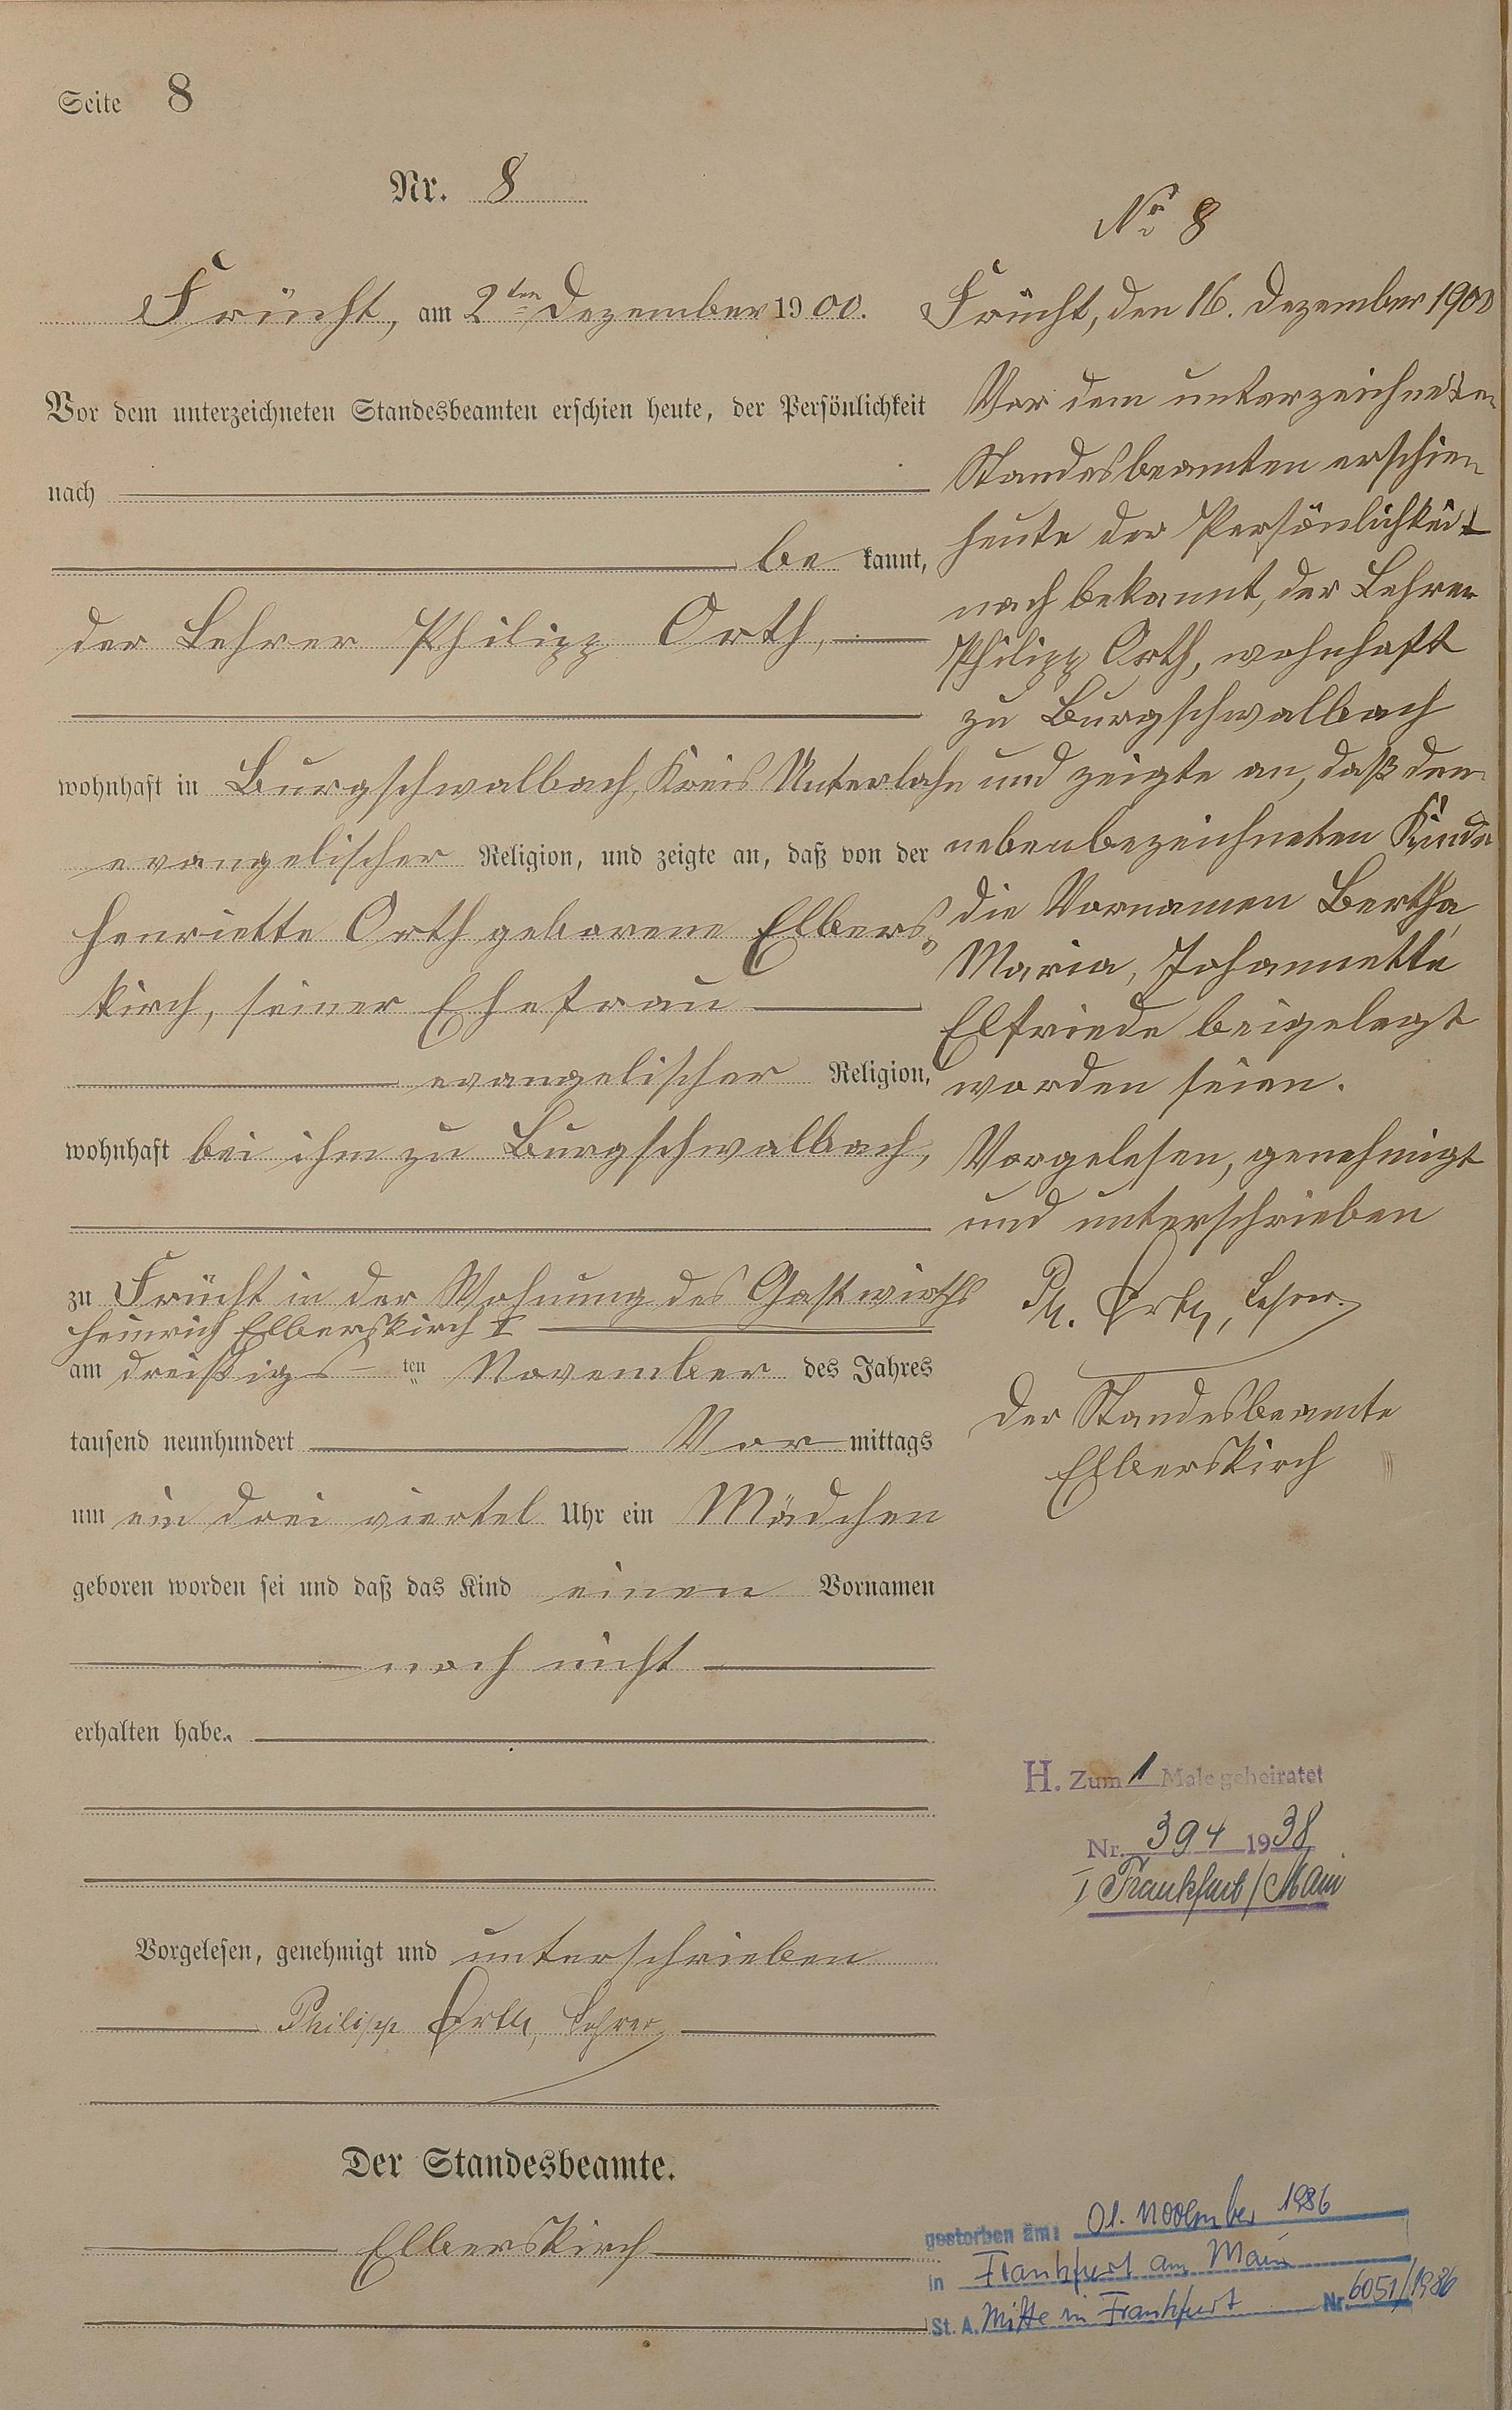 Seite 8
Nr. 8
Frücht, am 2ten Dezember 1900.
Vor dem unterzeichneten Standesbeamten erschien heute, der Persönlichkeit
nach
be kannt,
der Lehrer Philipp Orth,
wohnhaft in Burgschwalbach, Kreis Unterlahn
evangelischer Religion, und zeigte an, daß von der
Henriette Orth geborene Elbers=
kirch, seiner Ehefrau
evangelischer Religion,
wohnhaft bei ihm zu Burgschwalbach,
zu Frücht in der Wohnung des Gastwirths
Heinrich Elberskirch I
am dreißigs ten November des Jahres
tausend neunhundert Vor mittags
um ein drei viertel Uhr ein Mädchen
geboren worden sei und daß das Kind einen Vornamen
noch nicht
erhalten habe.
Vorgelesen, genehmigt und unterschrieben
Philipp Orth, Lehrer
Der Standesbeamte.
Elberskirch
No 8
Frücht, den 16. Dezember 1900
Vor dem unterzeichneten
Standesbeamten erschien
heute der Persönlichkeit
nach bekannt, der Lehrer
Philipp Orth, wohnhaft
zu Burgschwalbach
und zeigte an, daß dem
nebenbezeichneten Kinde
die Vornamen Bertha,
Maria, Johannette
Elfriede beigelegt
worden seien.
Vorgelesen, genehmigt
und unterschrieben
Ph. Orth, Lehrer.
Der Standesbeamte
Elberskirch
H. Zum 1 Male geheiratet
Nr. 394 1938
I Frankfurt/Main
gestorben am: 01. November 1986
in Frankfurt am Main
St. A. Mitte in Frankfurt Nr. 6051/1986